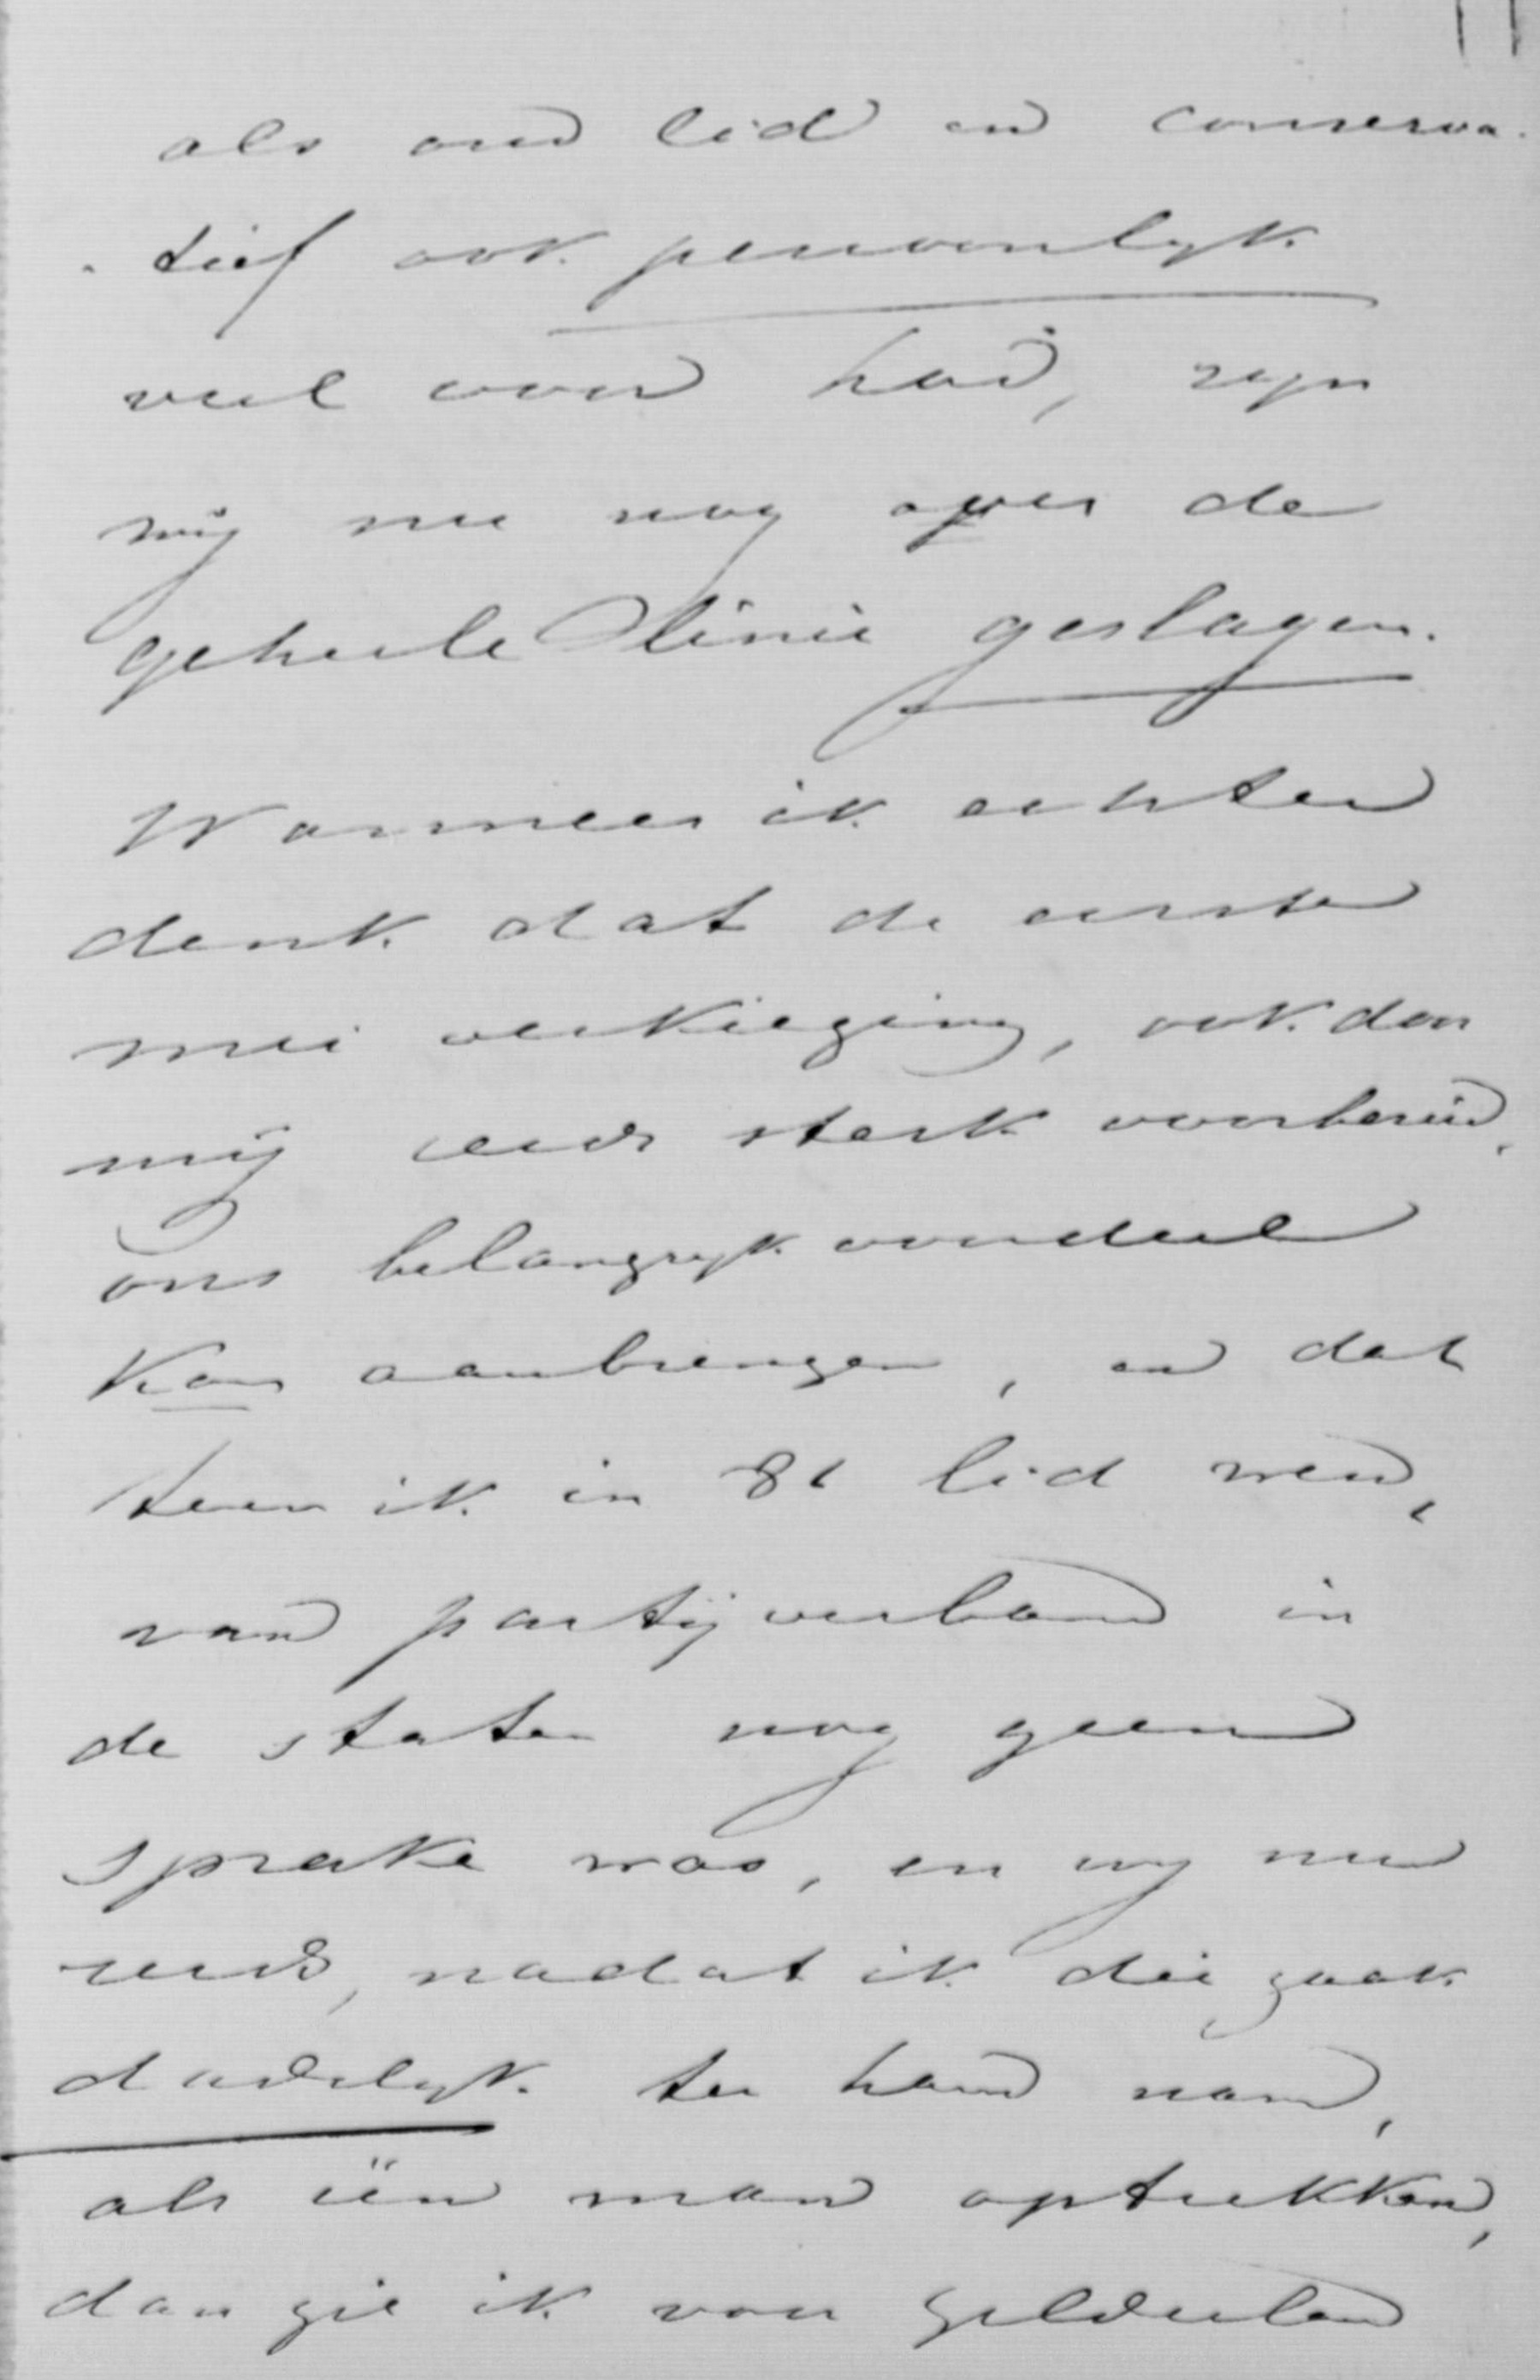 als oud lid en conserva-
-tief ook persoonlyk
veel voor had, zyn
wij nu nog over de
geheele linie geslagen.
Wanneer ik echter
denk dat de eerste
mei verkiezing, ook door
mij reeds sterk voorbereid,
ons belangryk voordeel
kan aanbrengen, en dat
toen ik in 81 lid werd,
van partijverband in
de staten nog geen
sprake was, en wy nu
reeds, nadat ik die zaak
dadelyk ter hand nam,
als één man optrekken,
dan zie ik voor Gelderland